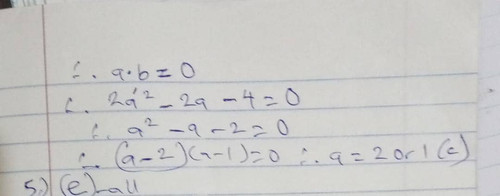 ∴ a·b = 0
∴ 2a² - 2a - 4 = 0
∴ a² - a - 2 = 0
∴ (a-2)(a-1)=0 ∴ a = 2 or 1 (c)
5.) (e) all